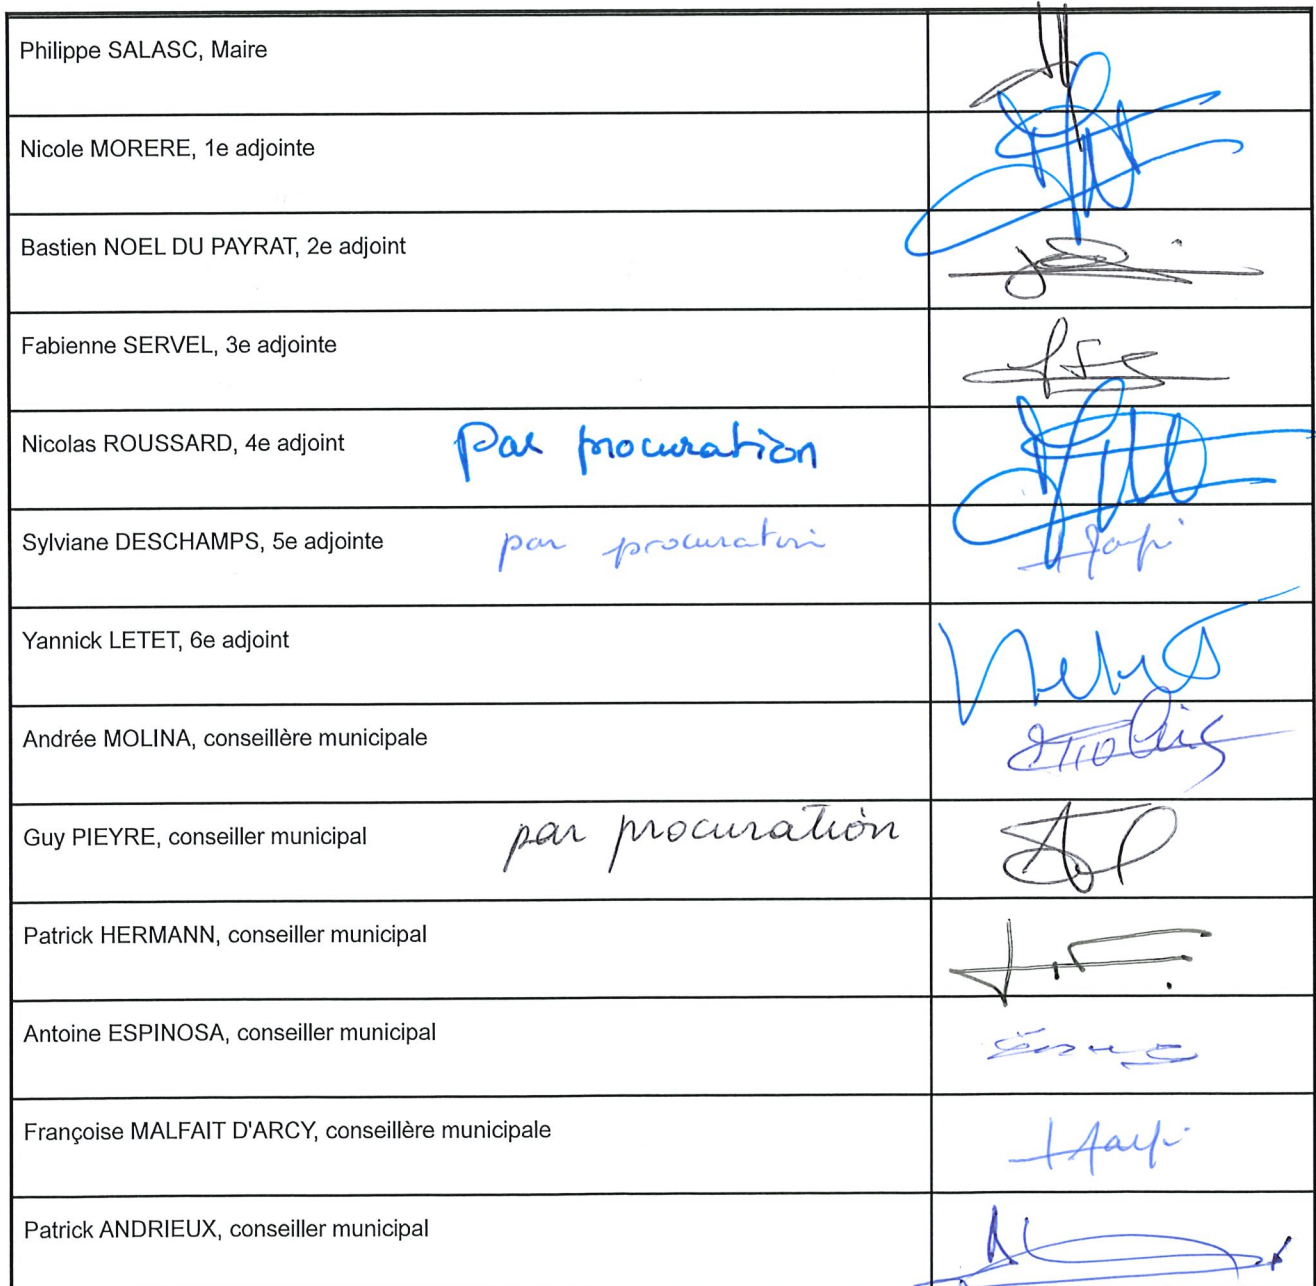 Philippe SALASC, Maire
Nicole MORERE, 1e adjointe
Bastien NOEL DU PAYRAT, 2e adjoint
Fabienne SERVEL, 3e adjointe
Nicolas ROUSSARD, 4e adjoint par procuration
Sylviane DESCHAMPS, 5e adjointe par procuration
Yannick LETET, 6e adjoint
Andrée MOLINA, conseillère municipale
Guy PIEYRE, conseiller municipal par procuration
Patrick HERMANN, conseiller municipal
Antoine ESPINOSA, conseiller municipal
Françoise MALFAIT D'ARCY, conseillère municipale
Patrick ANDRIEUX, conseiller municipal